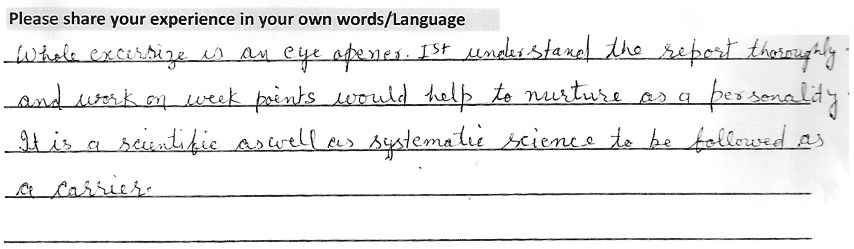 Please share your experience in your own words/Language
Whole excersize is an eye opener. Ist understand the report thoroughly
and work on week points would help to nurture as a personality
It is a scientific aswell as systematic science to be followed as
a carrier.